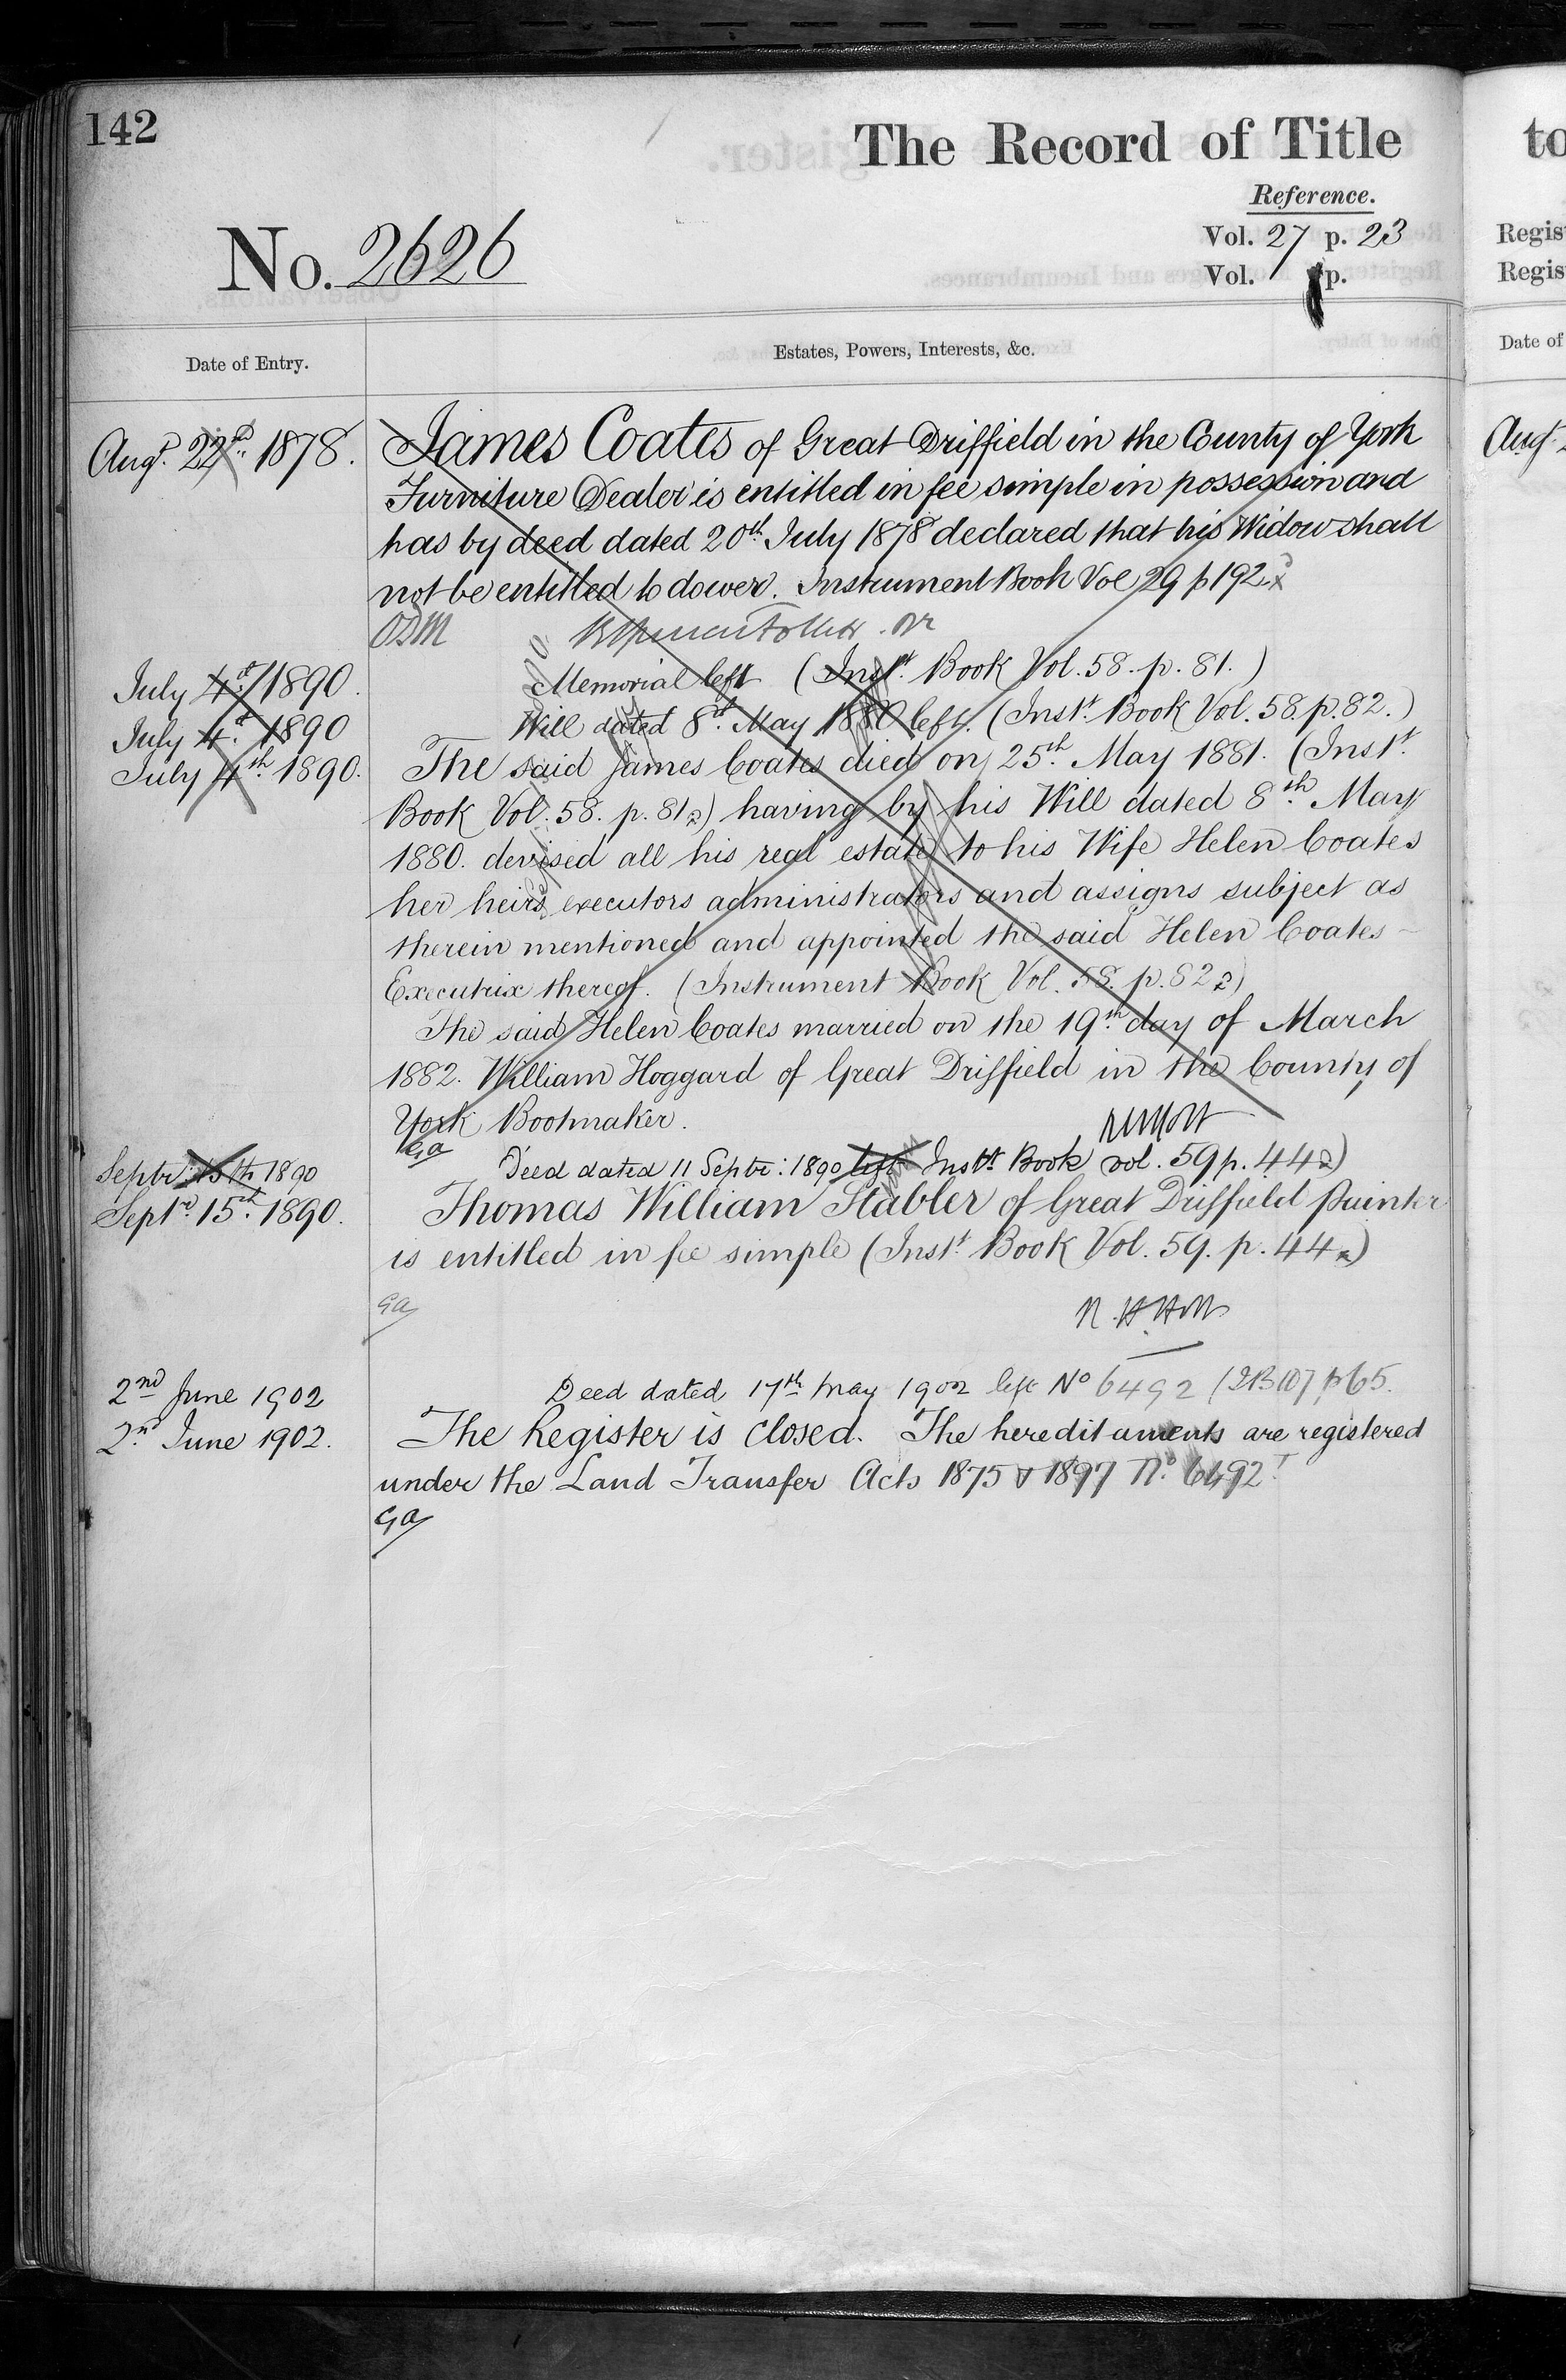 142
The Record of Title
Reference.
No. 2626
Vol. 27 p. 23
Vol. p.
Date of Entry.
Estates, Powers, Interests, &c.
Augt. 22nd. 1878.
James Coates of Great Driffield in the County of York
Furniture Dealer is entitled in fee simple in possession and
has by deed dated 20th July 1878 declared that his Widow shall
not be entitled to dower. Instrument Book Vol 29 p 192
July 4th 1890.
Memorial left (Inst. Book Vol. 58. p. 81.)
July 4th 1890
Will dated 8th May 1880 left. (Inst. Book Vol. 58. p. 82.)
July 4th 1890.
The said James Coates died on 25th May 1881. (Inst.
Book Vol. 58. p. 81) having by his Will dated 8th May
1880. devised all his real estate to his Wife Helen Coates
her heirs executors administrators and assigns subject as
therein mentioned and appointed the said Helen Coates
Executrix thereof. (Instrument Book Vol. 58. p. 82)
The said Helen Coates married on the 19th day of March
1882. William Hoggard of Great Driffield in the County of
York Bootmaker.
GA
Septr: 15th 1890
Deed dated 11 Septr: 1890 left Inst Book vol. 59 p. 44)
Septr. 15th 1890.
Thomas William Stabler of Great Driffield Painter
is entitled in fee simple (Inst. Book Vol. 59. p. 44)
GA
2nd June 1902
Deed dated 17th May 1902 left No 6492 p 65.
2nd June 1902.
The Register is closed. The hereditaments are registered
under the Land Transfer Acts 1875 & 1897 No. 6492.
GA
to
Regis
Regis
Date of
Augt.